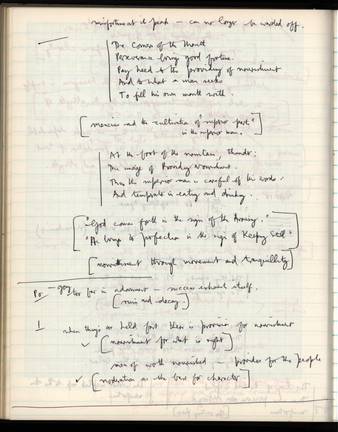 misfortune at its peak – can no longer be warded off.
The Corners of the Mouth
Perseverance brings good fortune.
Pay heed to the providing of nourishment
And to what a man seeks
To fill his own mouth with.
[Mencius and the cultivation of "superior parts"
in the superior man.]
At the foot of the mountain, thunder:
The image of Providing Nourishment.
Thus the superior man is careful of his words
And temperate in eating and drinking.
["God comes forth in the sign of the Arousing."
"He brings to perfection in the sign of Keeping Still"]
[nourishment through movement and tranquillity]
Po. – going too far in adornment – success exhausts itself.
[ruin and decay.]
I when things are held fast there is provision for nourishment
[nourishment for what is right]
men of worth nourished – provides for the people
[moderation as the base for character]